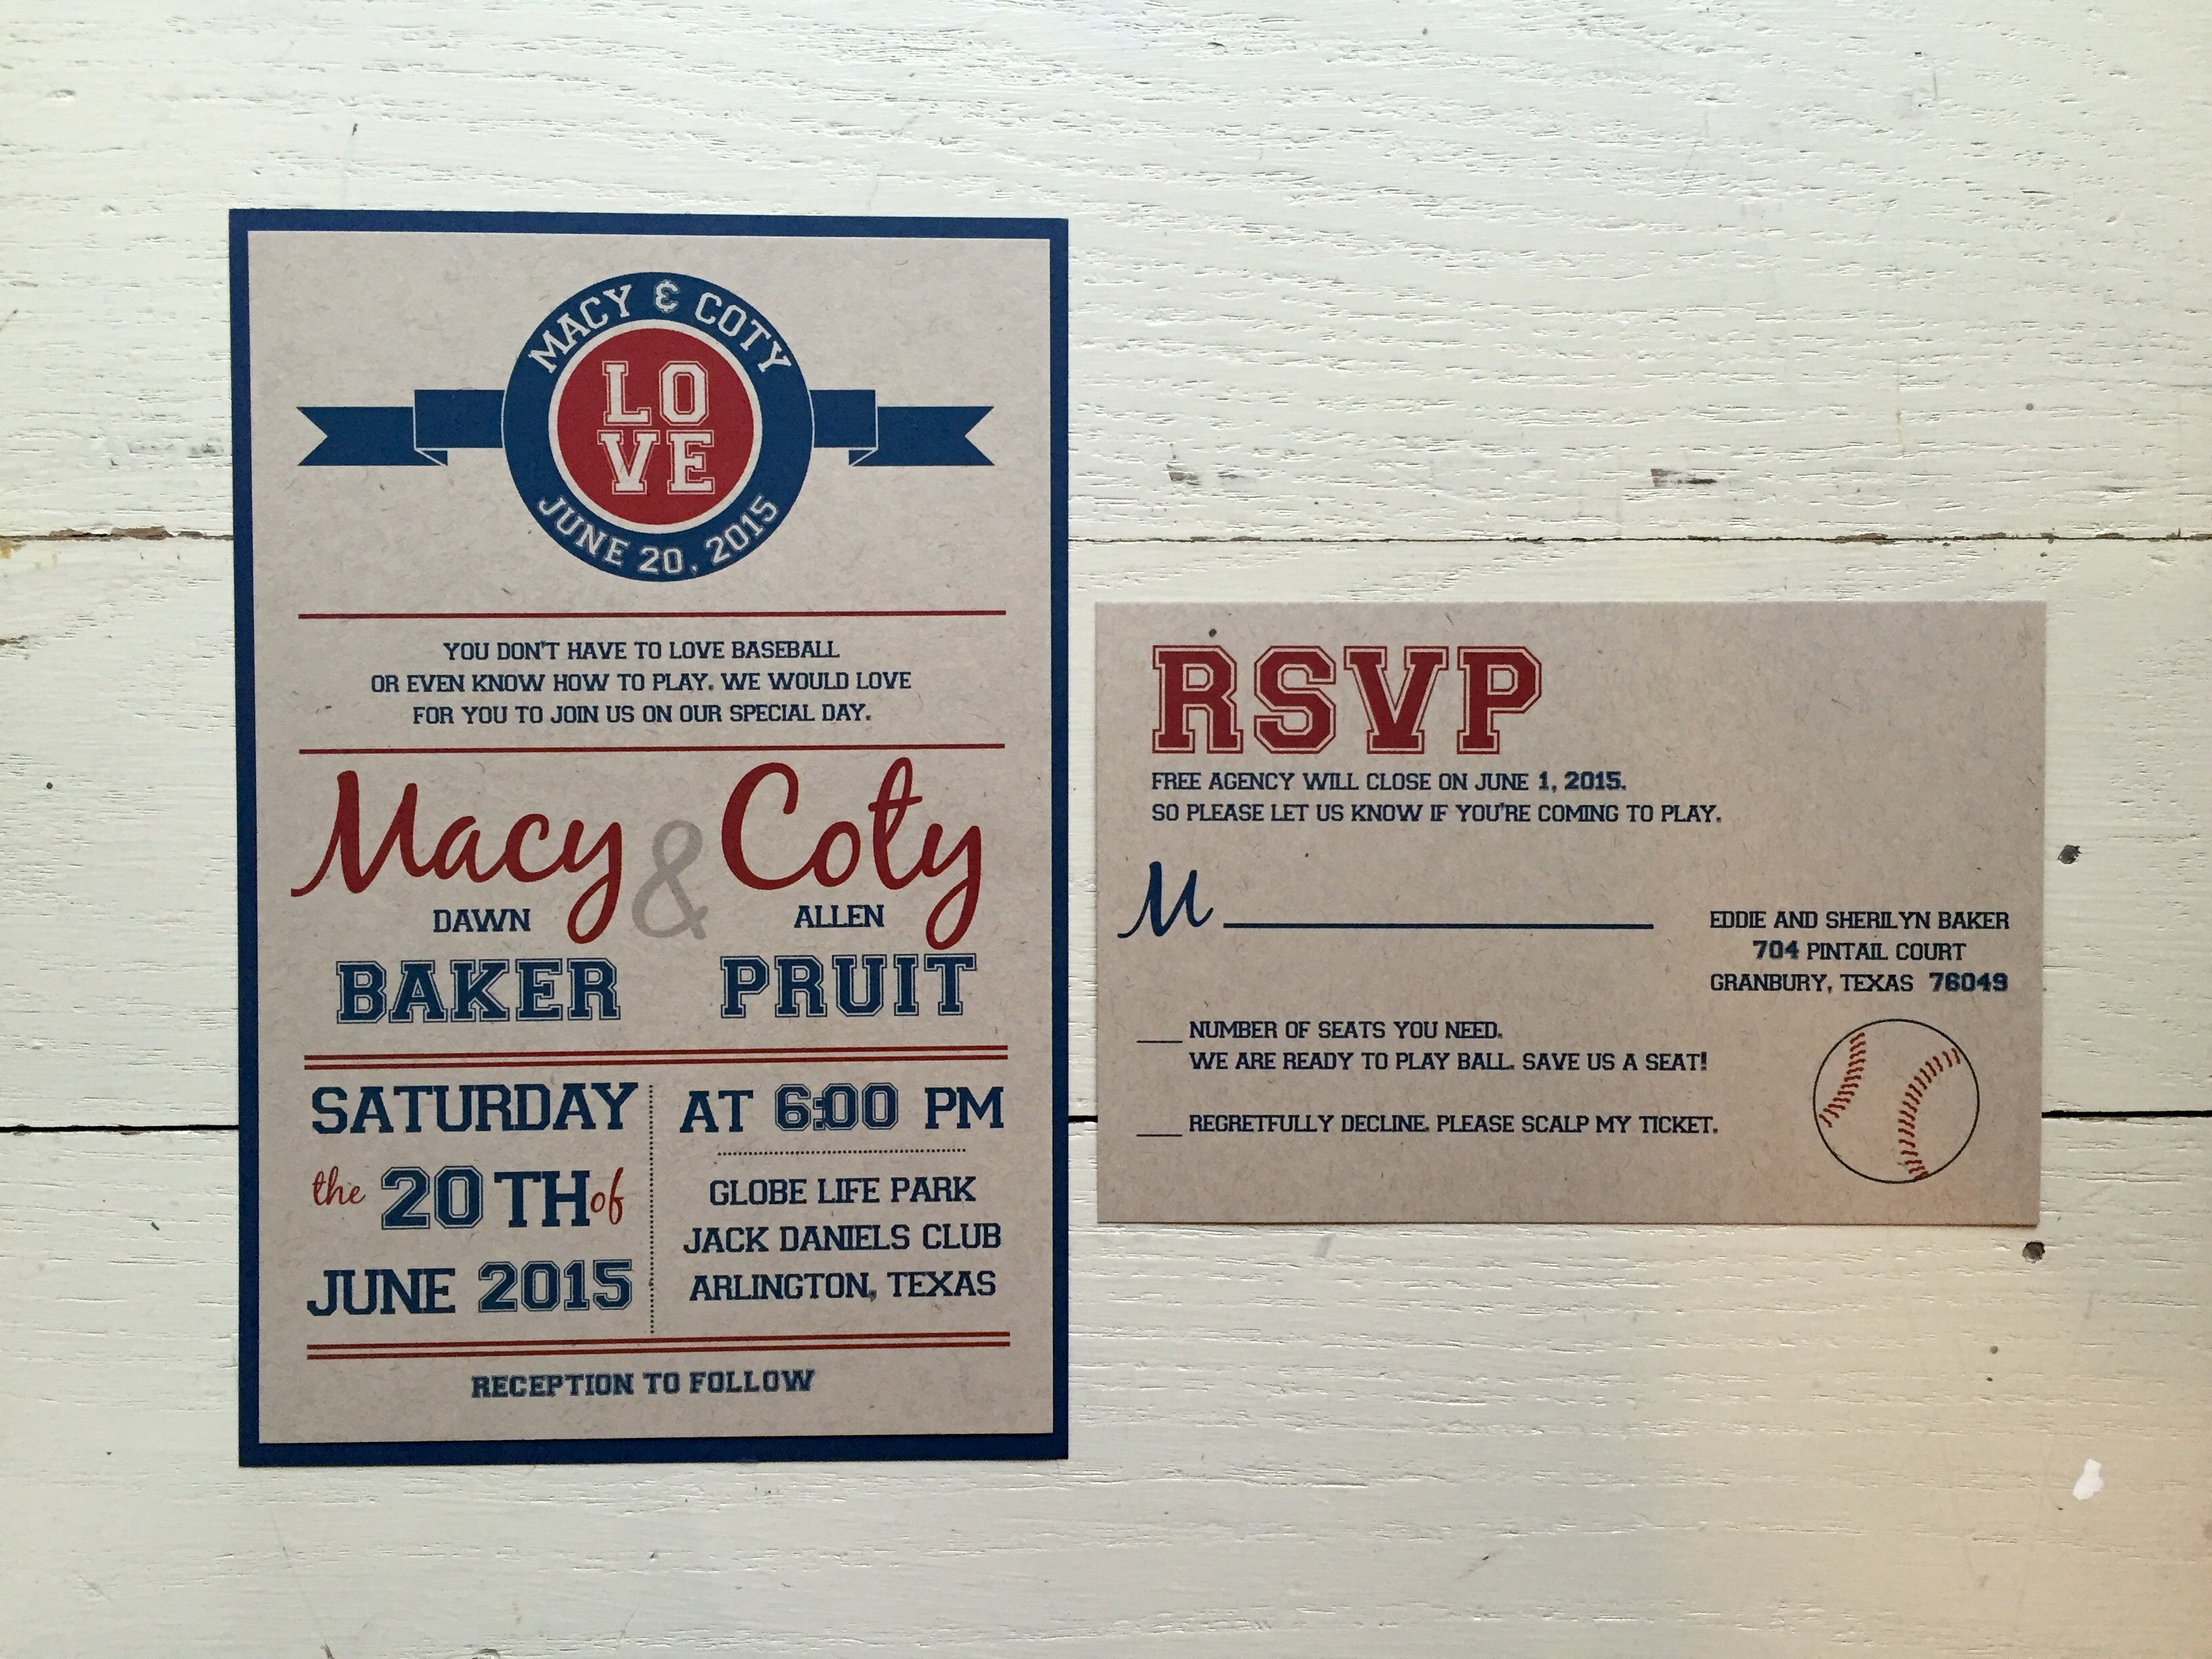 MACY & COTY
LO
VE
JUNE 20, 2015
YOU DON'T HAVE TO LOVE BASEBALL
OR EVEN KNOW HOW TO PLAY. WE WOULD LOVE
FOR YOU TO JOIN US ON OUR SPECIAL DAY.
Macy & Coty
DAWN ALLEN
BAKER PRUIT
SATURDAY
the 20TH of
JUNE 2015
AT 6:00 PM
GLOBE LIFE PARK
JACK DANIELS CLUB
ARLINGTON, TEXAS
RECEPTION TO FOLLOW
RSVP
FREE AGENCY WILL CLOSE ON JUNE 1, 2015.
SO PLEASE LET US KNOW IF YOU'RE COMING TO PLAY.
M
EDDIE AND SHERILYN BAKER
704 PINTAIL COURT
GRANBURY, TEXAS 76049
NUMBER OF SEATS YOU NEED.
WE ARE READY TO PLAY BALL. SAVE US A SEAT!
REGRETFULLY DECLINE. PLEASE SCALP MY TICKET.